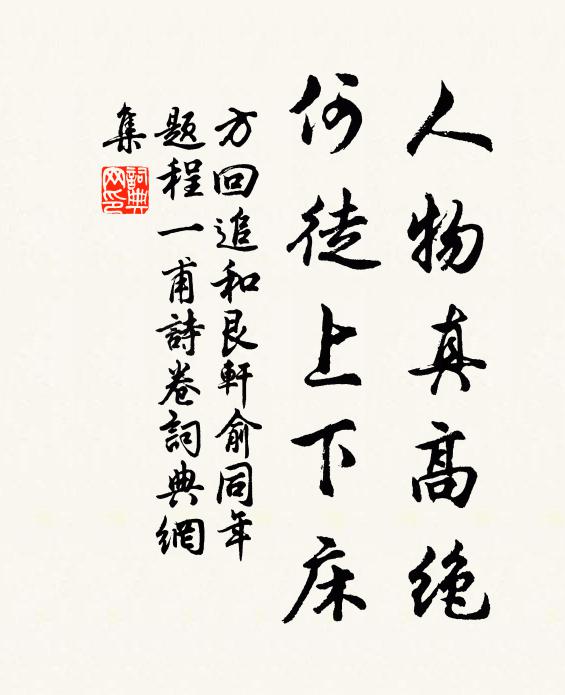 人物真高绝
何徒上下床
方回追和艮軒俞同年
题程一甫詩卷詞典網
集
詞典
网印